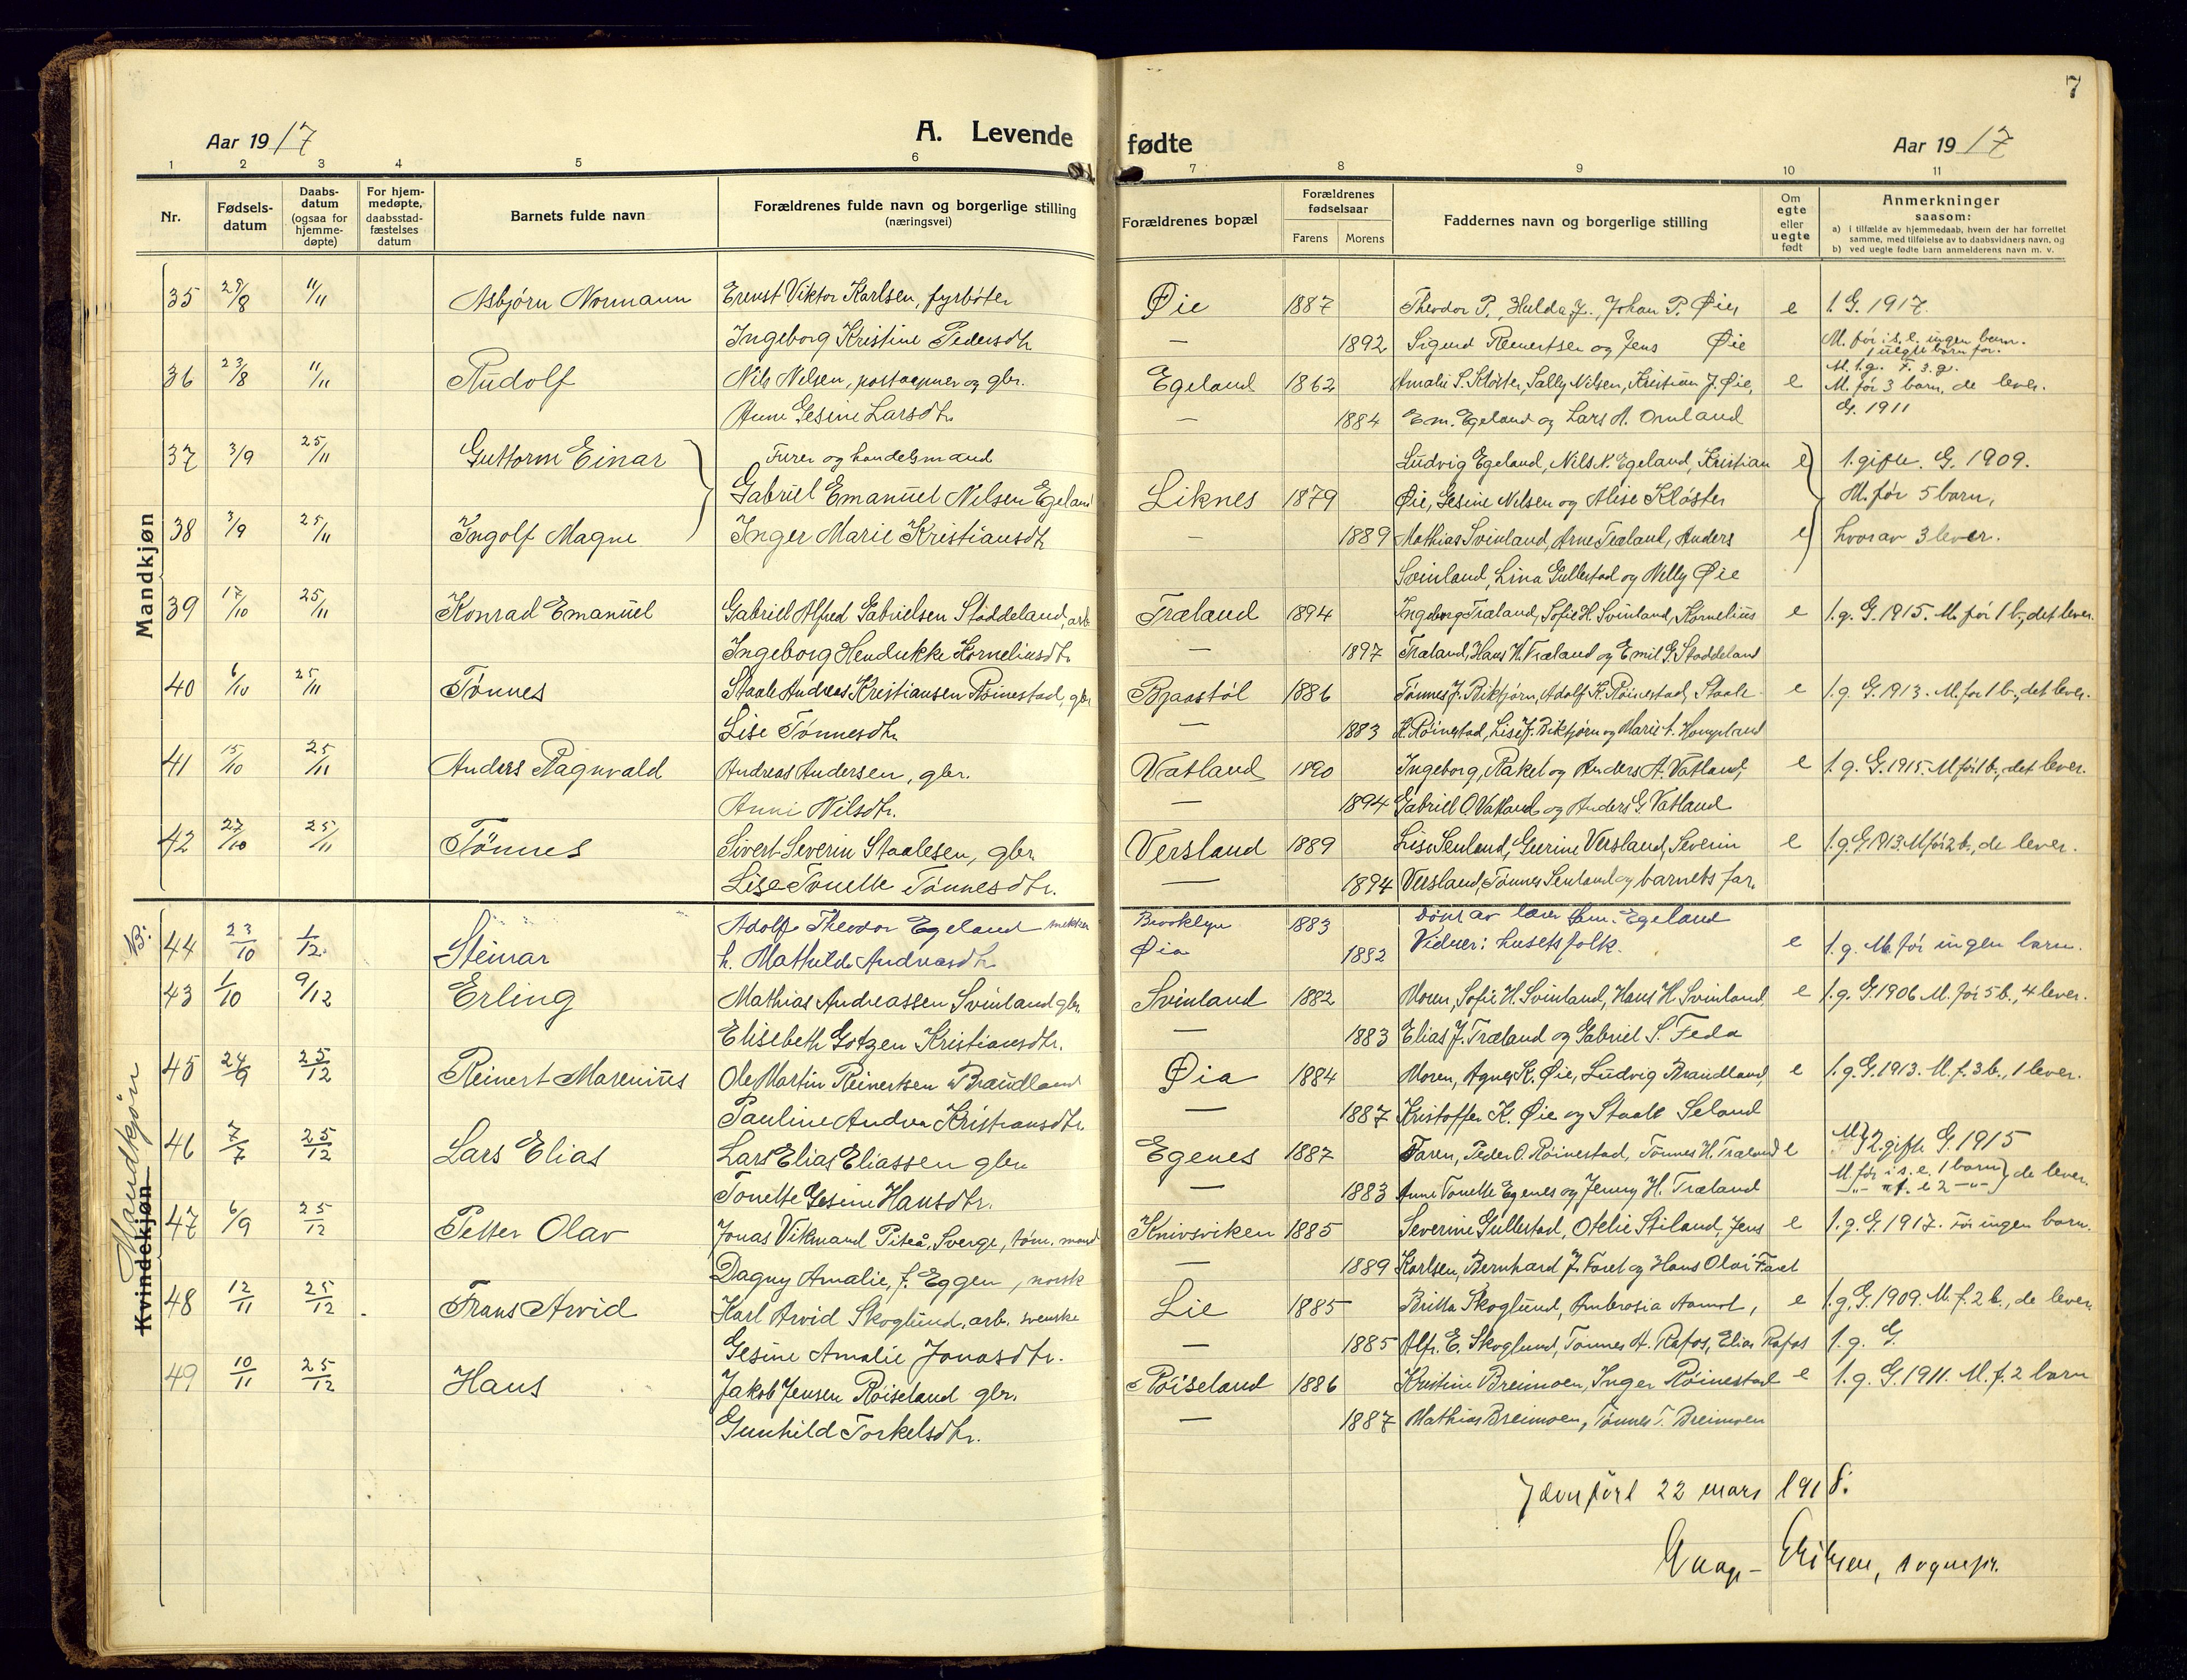 7
Aar 1917 A. Levende fødte Aar 1917
1 2 3 4 5 6 7 8 9 10 11
Nr. Fødsels-datum Daabs-datum (ogsaa for hjemme-døpte) For hjem-medøpte, daabsstad-fæstelses datum Barnets fulde navn Forældrenes fulde navn og borgerlige stilling (næringsvei) Forældrenes bopæl Forældrenes fødselsaar Farens Morens Faddernes navn og borgerlige stilling Om egte eller uegte født Anmerkninger saasom:
a) i tilfælde av hjemmedaab, hvem der har forrettet samme, med tilføielse av to daabsvidners navn, og
b) ved uegte fødte barn anmelderens navn m. v.
Mandkjøn
35 29/8 11/11 Asbjørn Normann Ernst Viktor Karlsen, fyrbøter Øie 1887 Theodor P., Hulda J., Johan P. Øie, e 1. G. 1917.
Ingeborg Kristine Pedersdtr — 1892 Sigurd Reinertsen og Jens Øie M. før i s. e. ingen barn. 1 uegte barn før.
36 23/8 11/11 Rudolf Nils Nilsen, postaapner og gbr. Egeland 1862 Amalie S. Kløster, Sally Nilsen, Kristian J. Øie, e M. 1. g. F. 3. g. M. før 3 barn, de lever.
Anne Gesine Larsdtr. — 1884 Em. Egeland og Lars A. Omland G. 1911
37 3/9 25/11 Guttorm Einar Furer og handelsmand Ludvig Egeland, Nils N. Egeland, Kristian e 1. gifte. G. 1909.
Gabriel Emanuel Nilsen Egeland Liknes 1879 Øie, Gesine Nilsen og Alise Kløster M. før 5 barn,
38 3/9 25/11 Ingolf Magne Inger Marie Kristiansdtr — 1889 Mathias Svinland, Arne Træland, Anders e hvorav 3 lever.
Svinland, Lina Gullestad og Nelly Øie
39 17/10 25/11 Konrad Emanuel Gabriel Alfred Gabrielsen Stoddeland, arb Træland 1894 Ingeborg Træland, Sofie H. Svinland, Kornelius e 1. g. G. 1915. M. før 1 b., det lever.
Ingeborg Hendrikke Korneliusdtr — 1897 Træland, Hans H. Træland og Emil G. Stoddeland
40 6/10 25/11 Tønnes Staale Andreas Kristiansen Røinestad, gbr Bjaastøl 1886 Tønnes J. Birkjørn, Adolf K. Røinestad, Staale e 1. g. G. 1913. M. før 1 b., det lever.
Lise Tønnesdtr. — 1883 K. Røinestad, Lise J. Birkjørn og Marie A. Hompland
41 15/10 25/11 Anders Ragnvald Andreas Andersen, gbr. Vatland 1890 Ingeborg, Rakel og Anders A. Vatland, e 1. g. G. 1915. M før 1 b., det lever.
Anni Nilsdtr. — 1894 Gabriel O. Vatland og Anders G. Vatland
42 27/10 25/11 Tønnes Sivert Severin Staalesen, gbr. Versland 1889 Lise Senland, Geerine Versland, Severin e 1. g. G. 1913. M før 2 b., de lever.
Lise Tonette Tønnesdtr. — 1894 Versland, Tønnes Senland og barnets far.
Kvindekjøn Mandkjøn
NB: 44 23/10 1/12 Steinar Adolf Theodor Egeland Brooklyn 1883 Døpt av lærer Em. Egeland
h. Mathilde Andreasdtr Øia 1882 Vidner: husets folk. e 1. g. M. før ingen barn.
43 1/10 9/12 Erling Mathias Andreassen Svinland gbr. Svinland 1882 Moren, Sofie H. Svinland, Hans H. Svinland, e 1. g. G. 1906 M. før 5 b., 4 lever.
Elisebeth Gotzen Kristiansdtr. — 1883 Elias J. Træland og Gabriel S. Feda
45 24/9 25/12 Reinert Marenius Ole Martin Reinertsen Braudland Øia 1884 Moren, Agnes K. Øie, Ludvig Braudland, e 1. g. G. 1913. M. f. 3 b., 1 lever.
Pauline Andrea Kristiansdtr — 1887 Kristoffer K. Øie og Staale Seland
46 7/7 25/12 Lars Elias Lars Elias Eliassen gbr. Egenes 1887 Faren, Peder O. Røinestad, Tønnes H. Træland e 2. gifte G. 1915
Tonette Gesine Hansdtr. — 1883 Anne Tonette Egenes og Jenny H. Træland M. før i s. e. 1 barn de lever.
47 6/9 25/12 Petter Olav Jonas Vikmand Piteå, Sverge, tøm. mand Knivsviken 1885 Severine Gullestad, Otelie Stiland, Jens e 1. g. G. 1917. Før ingen barn.
Dagny Amalie, f. Eggen, norsk — 1889 Karlsen, Bernhard J. Faret og Hans Olai Faret
48 12/11 25/12 Frans Arvid Karl Arvid Skoglund, arb. svenske Lie 1885 Britta Skoglund, Ambrosia Aamot, e 1. g. G. 1909. M. f. 2 b., de lever.
Gesine Amalie Jonasdtr. — 1885 Alfr. E. Skoglund, Tønnes A. Rafos, Elias Rafos 1. g. G.
49 10/11 25/12 Hans Jakob Jensen Røiseland gbr. Røiseland 1886 Kristine Breimoen, Inger Røinestad e 1. g. G. 1911. M. f. 2 barn
Gunhild Torkelsdtr. — 1887 Mathias Breimoen, Tønnes T. Breimoen
Jævnført 22 mars 1918.
Eriksen, sognepr.